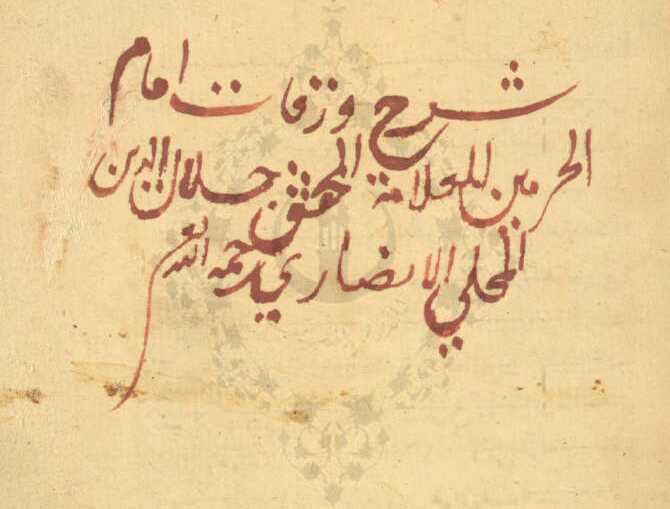 شرح ورقات امام
الحرمين للعلامة المحقق جلال الدين
المحلي الانصاري رحمه الله